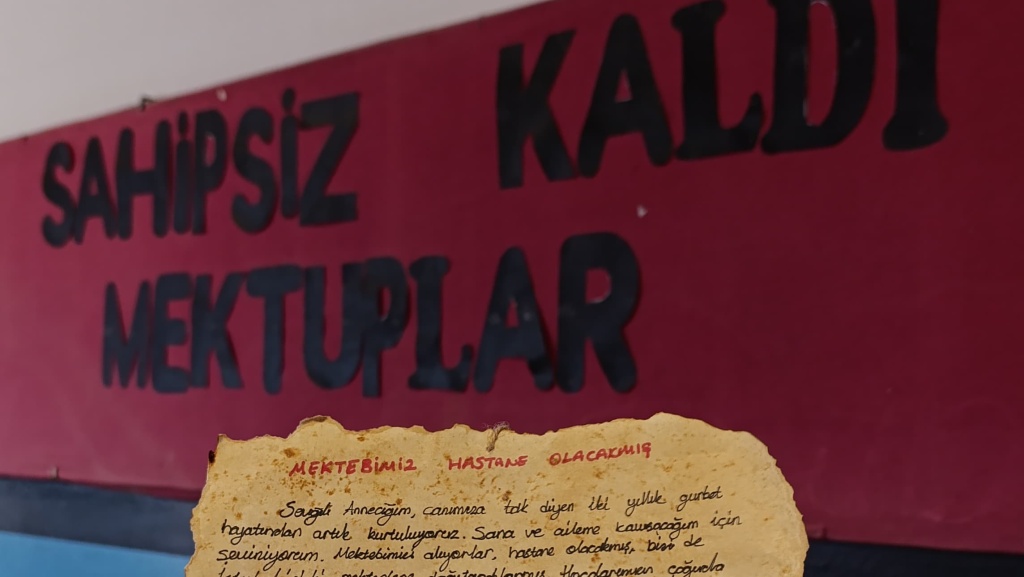 SAHİPSİZ KALDI
MEKTUPLAR
MEKTEBİMİZ HASTANE OLACAKMIŞ
Sevgili Anneciğim, canımıza tak diyen iki yıllık gurbet
hayatından artık kurtuluyoruz. Sana ve aileme kavuşacağım için
seviniyorum. Mektebimizi alıyorlar, hastane olacakmış, bizi de